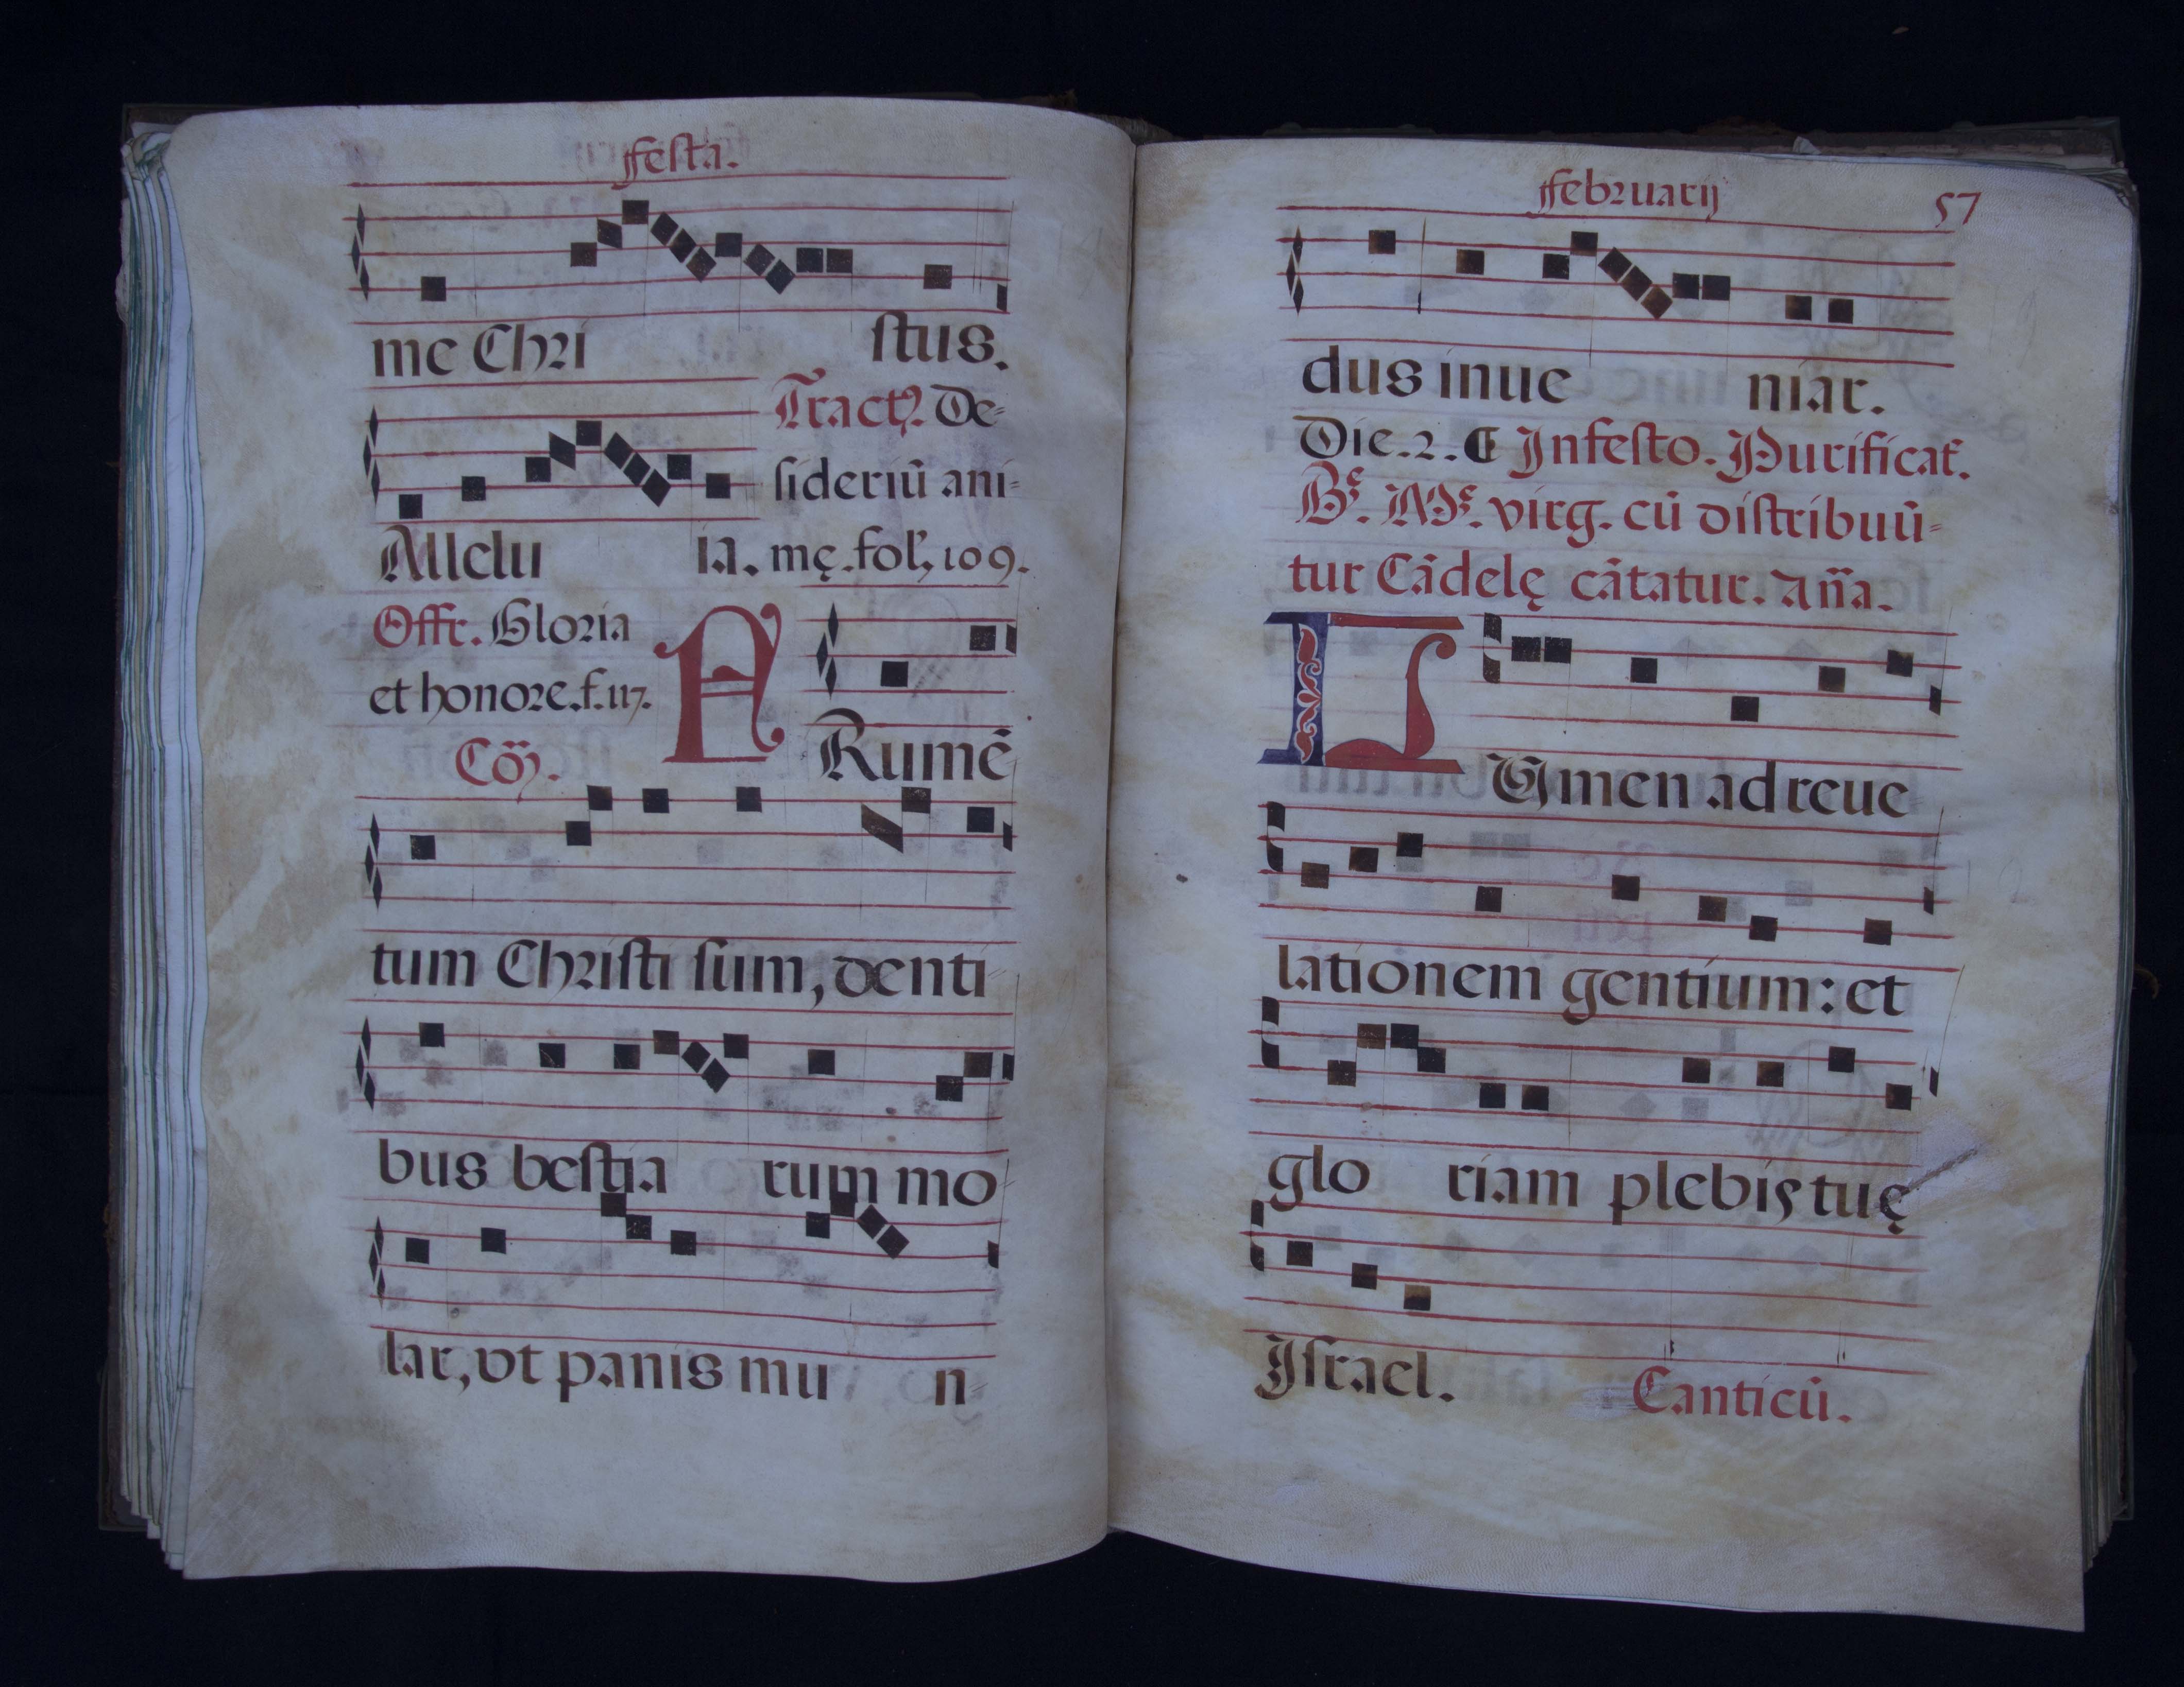 Festa.
me Chri stus.
Tractꝰ. De-
sideriū ani-
Allelu ia. mę. fol, 109.
Offr. Gloria
et honore. f. 117.
Cōȝ.
F Rumē
tum Christi sum, denti
bus bestia rum mo
lar, vt panis mu n-
Februarij 57
dus inue niar.
Die. 2. ¶ In festo. Purificat.
Bᵉ. Mᵉ. virg. cū distribuū-
tur Cādelę cātatur. Aña.
L Vmen ad reue
lationem gentium: et
glo riam plebis tuę
Israel. Canticū.